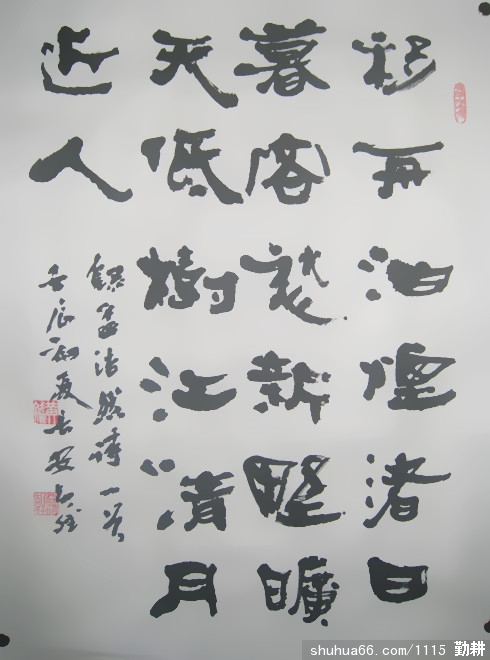 移舟泊煙渚日
暮客愁新野曠
天低樹江清月
近人
録孟浩然詩一首
壬辰初夏
shuhua66.com/1115 勤耕